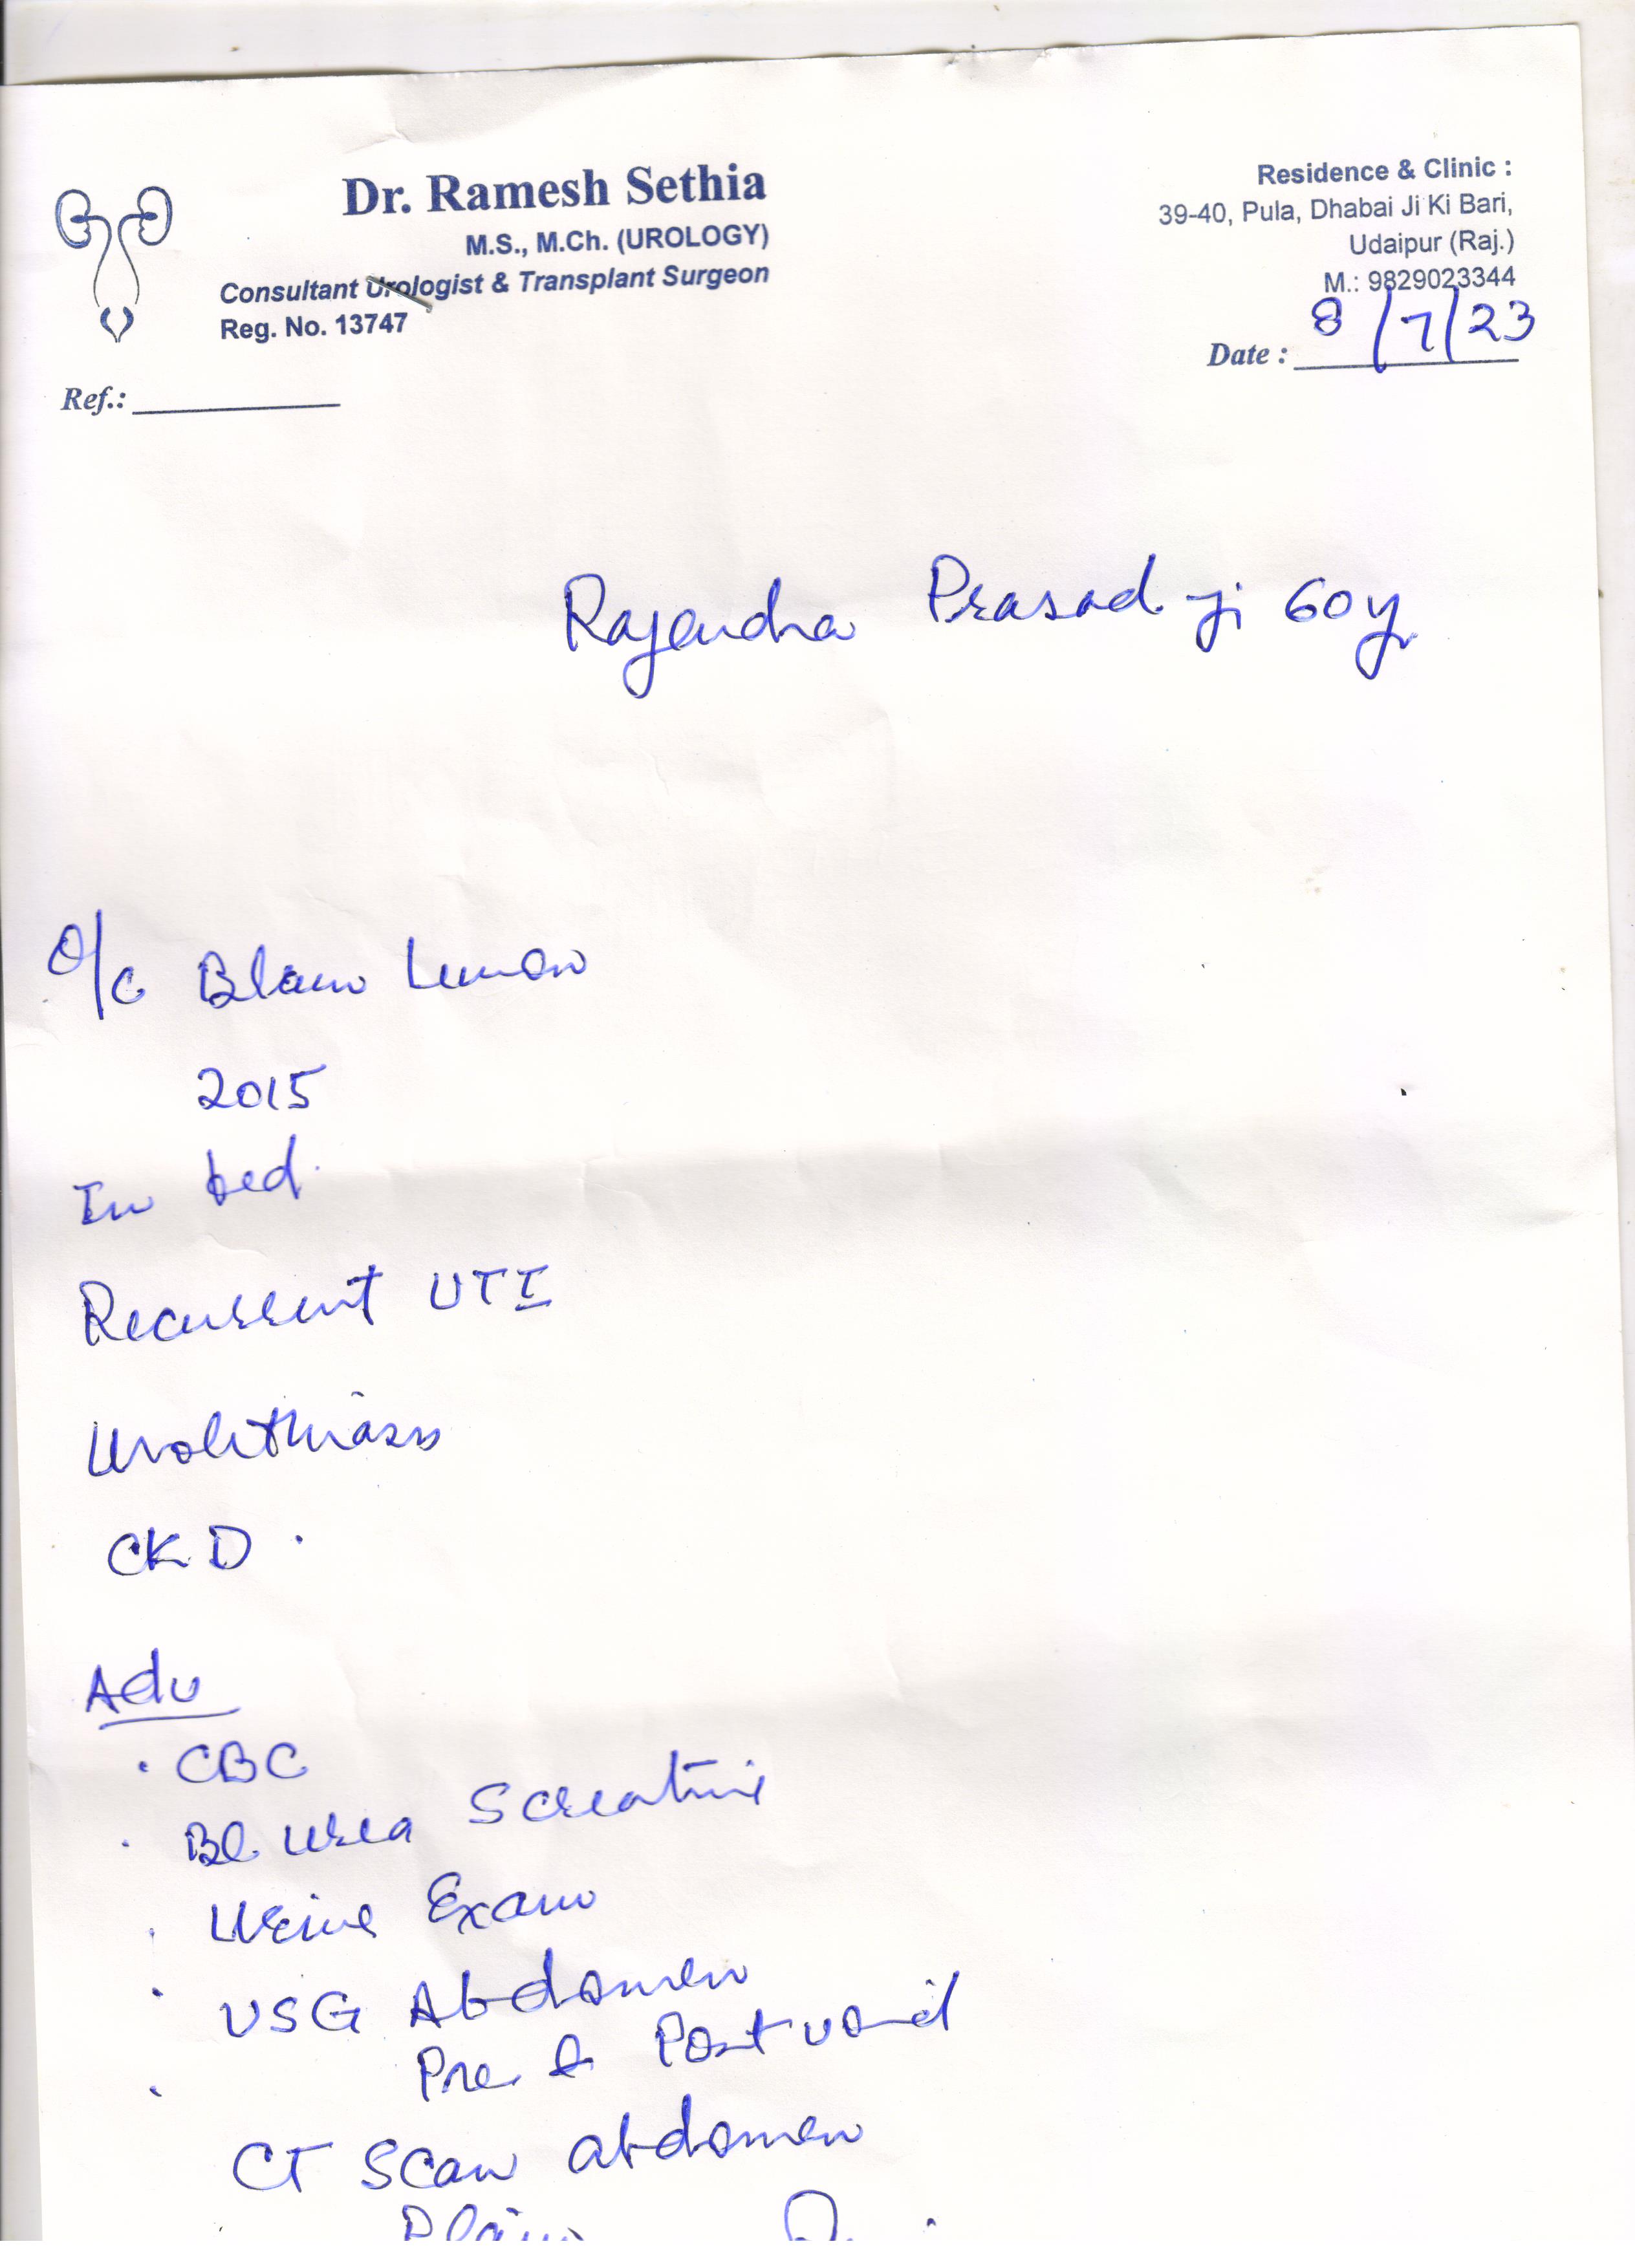 Dr. Ramesh Sethia
M.S., M.Ch. (UROLOGY)
Consultant Urologist & Transplant Surgeon
Reg. No. 13747
Ref.:
Residence & Clinic :
39-40, Pula, Dhabai Ji Ki Bari,
Udaipur (Raj.)
M.: 9829023344
Date : 8/7/23
Rajendra Prasad ji 60y
O/C
2015
In bed.
Recurrent UTI
Urolithiasis
CKD.
Adv
· CBC
· Bl. Urea S creatinine
· Urine Exam
· USG Abdomen
· Pre & Post void
CT Scan abdomen
Plain